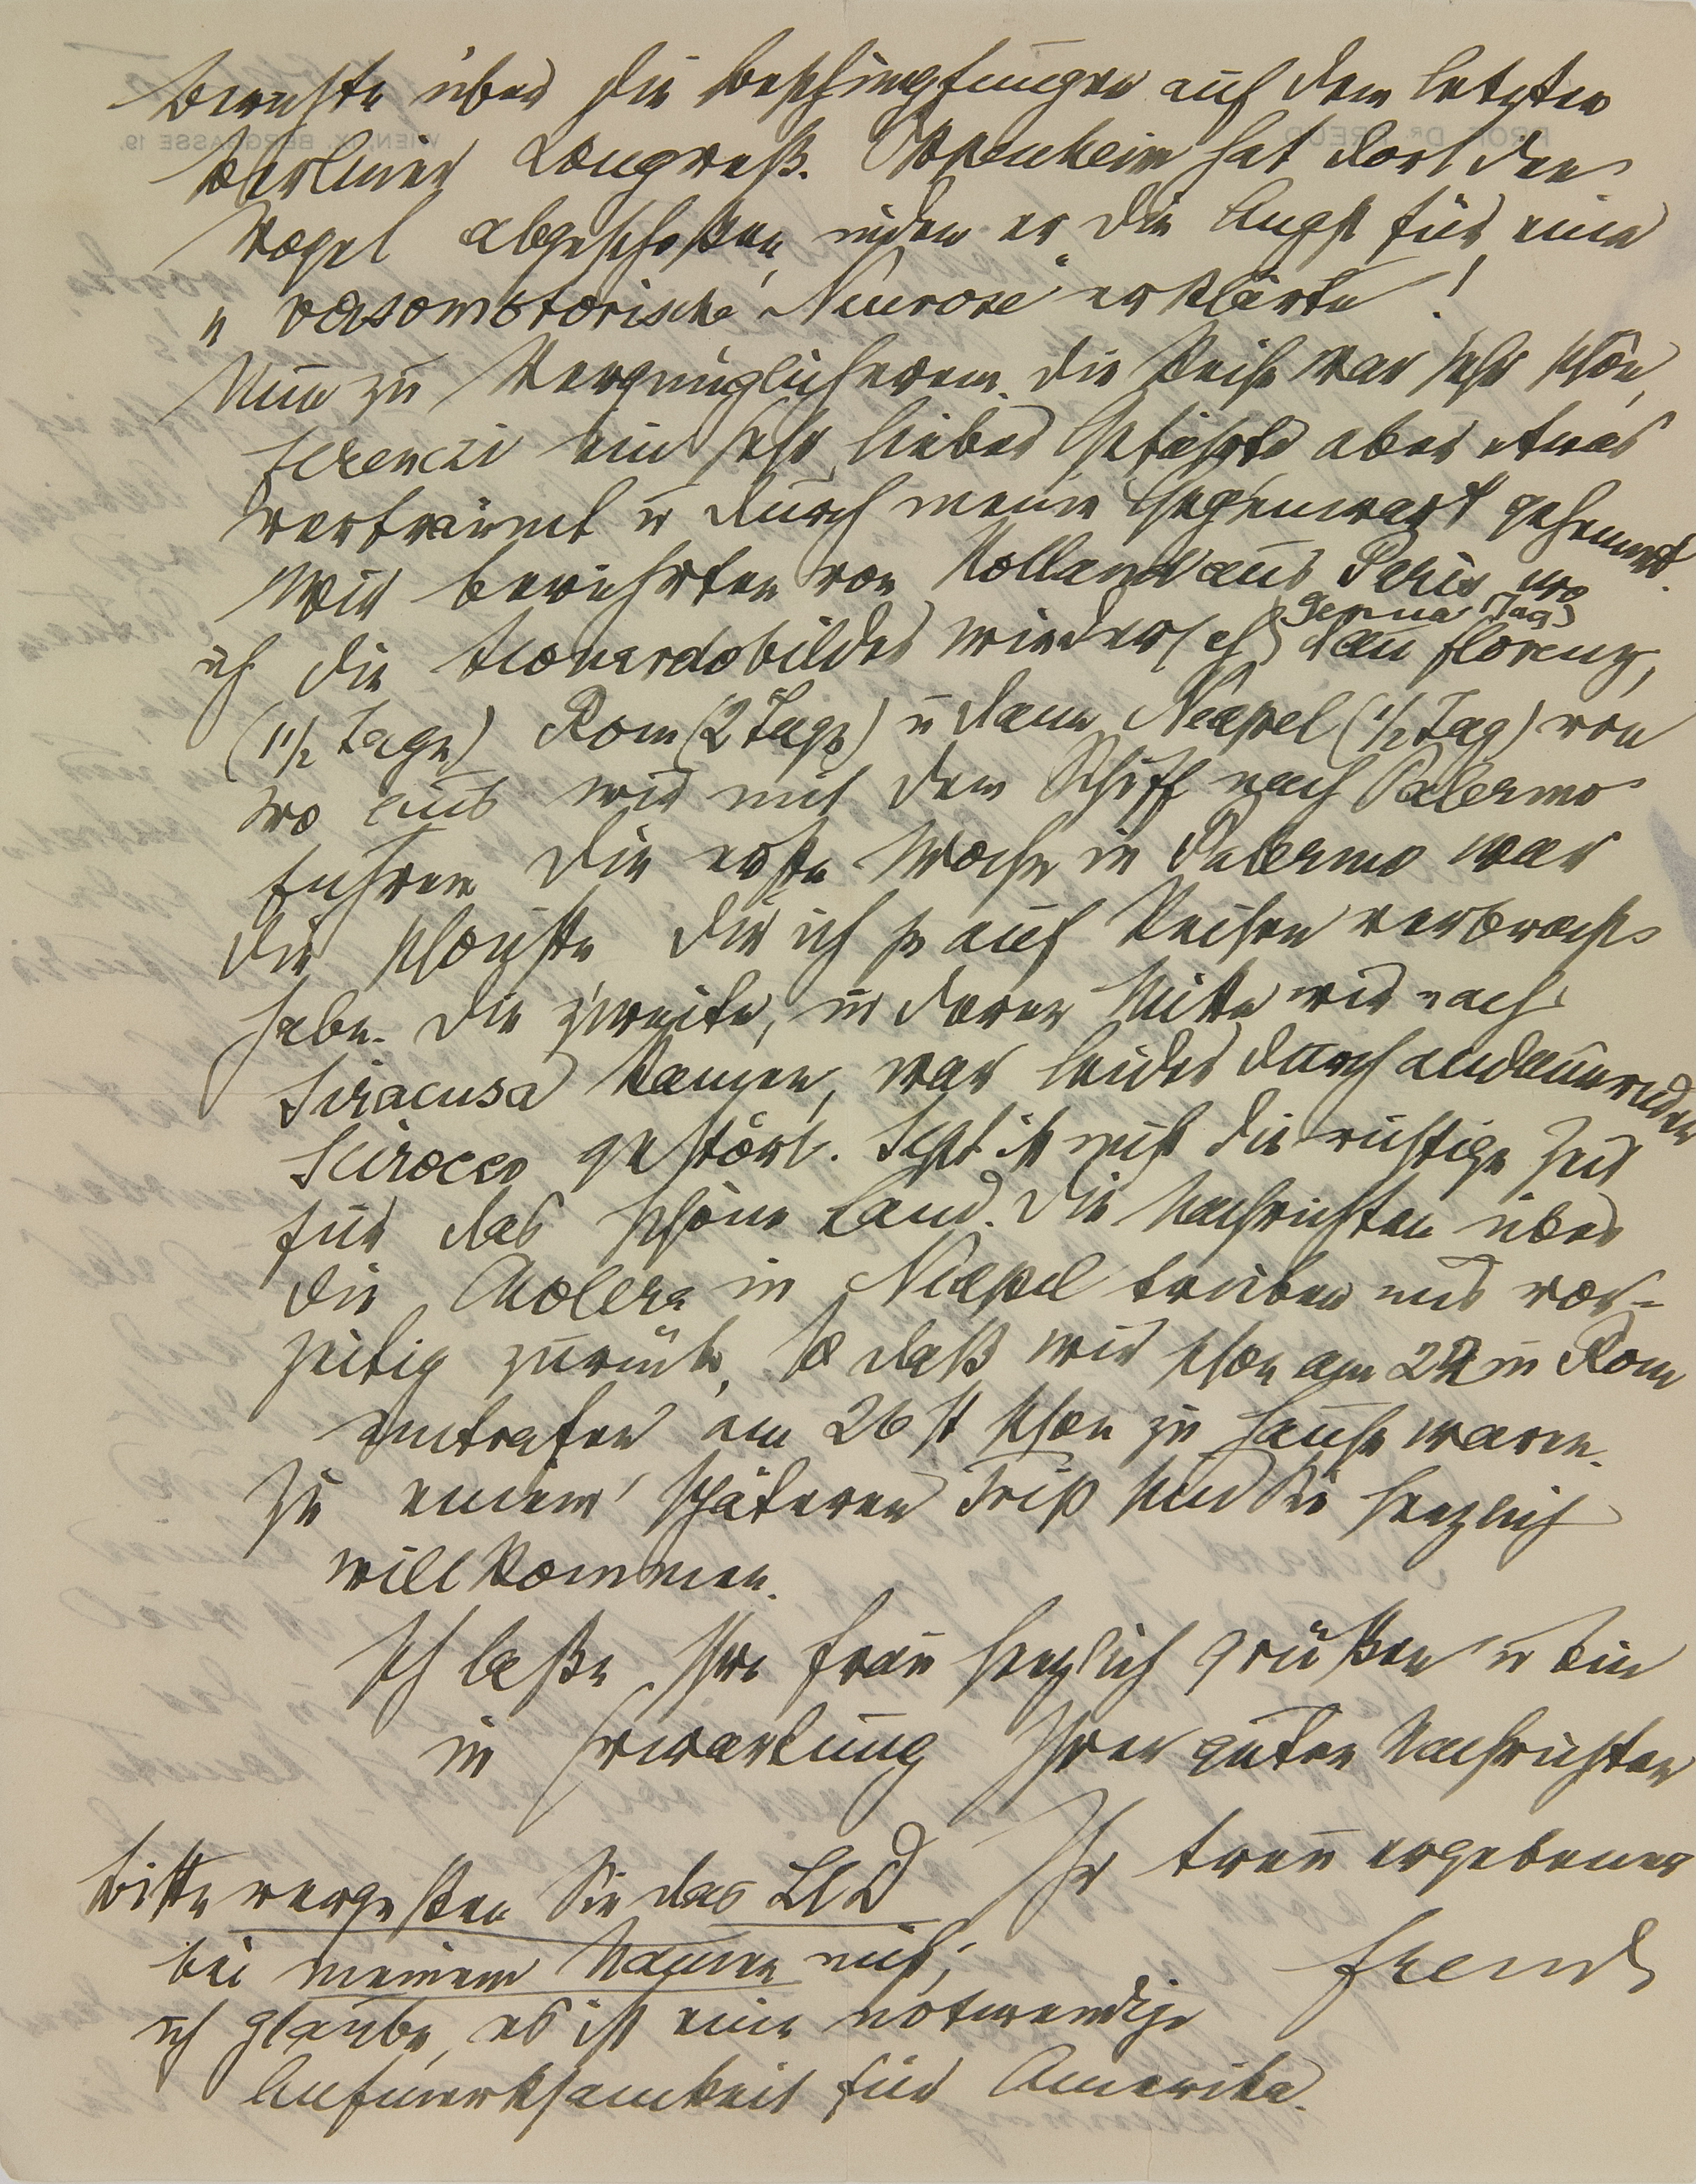 Berichte über die Beschimpfungen auf dem letzten
Berliner Congreß. Oppenheim hat dort den
Vogel abgeschoßen, indem er die Angst für eine
„vasomotorische Neurose“ erklärte!
Nun zu Vergnüglicherem. Die Reise war sehr schön,
Ferenczi ein sehr lieber Gefährte aber etwas
verträumt u durch meine Gegenwart gehemmt.
Wir berührten von Holland aus Paris, wo
ich die Leonardobilder wiedersah, Genua (Tag) dann Florenz,
(1 1/2 Tage) Rom (2 Tage) u dann Neapel (1/2 Tag) von
wo aus wir mit dem Schiff nach Palermo
fuhren Die erste Woche in Palermo war
die schönste die ich je auf Reisen verbracht
habe. Die zweite, in deren Mitte wir nach
Siracusa kamen, war leider durch andauernden
Scirocco gestört. Jetzt ist nicht die richtige Zeit
für das schöne Land. Die Nachrichten über
die Cholera in Neapel trieben uns vor-
zeitig zurück, so daß wir schon am in Rom
eintrafen am 26st schon zu Hause waren.
Zu einem späteren Trip sind Sie herzlich
willkommen.
Ich laße Ihre Frau herzlich grüßen u bin
in Erwartung Ihrer guten Nachrichten
Ihr treu ergebener
Freud
Bitte vergeßen Sie das LLD
bei meinem Namen nicht;
ich glaube, es ist eine notwendige
Aufmerksamkeit für Amerika.
PROF. DR. FREUD
WIEN, IX. BERGGASSE 19.